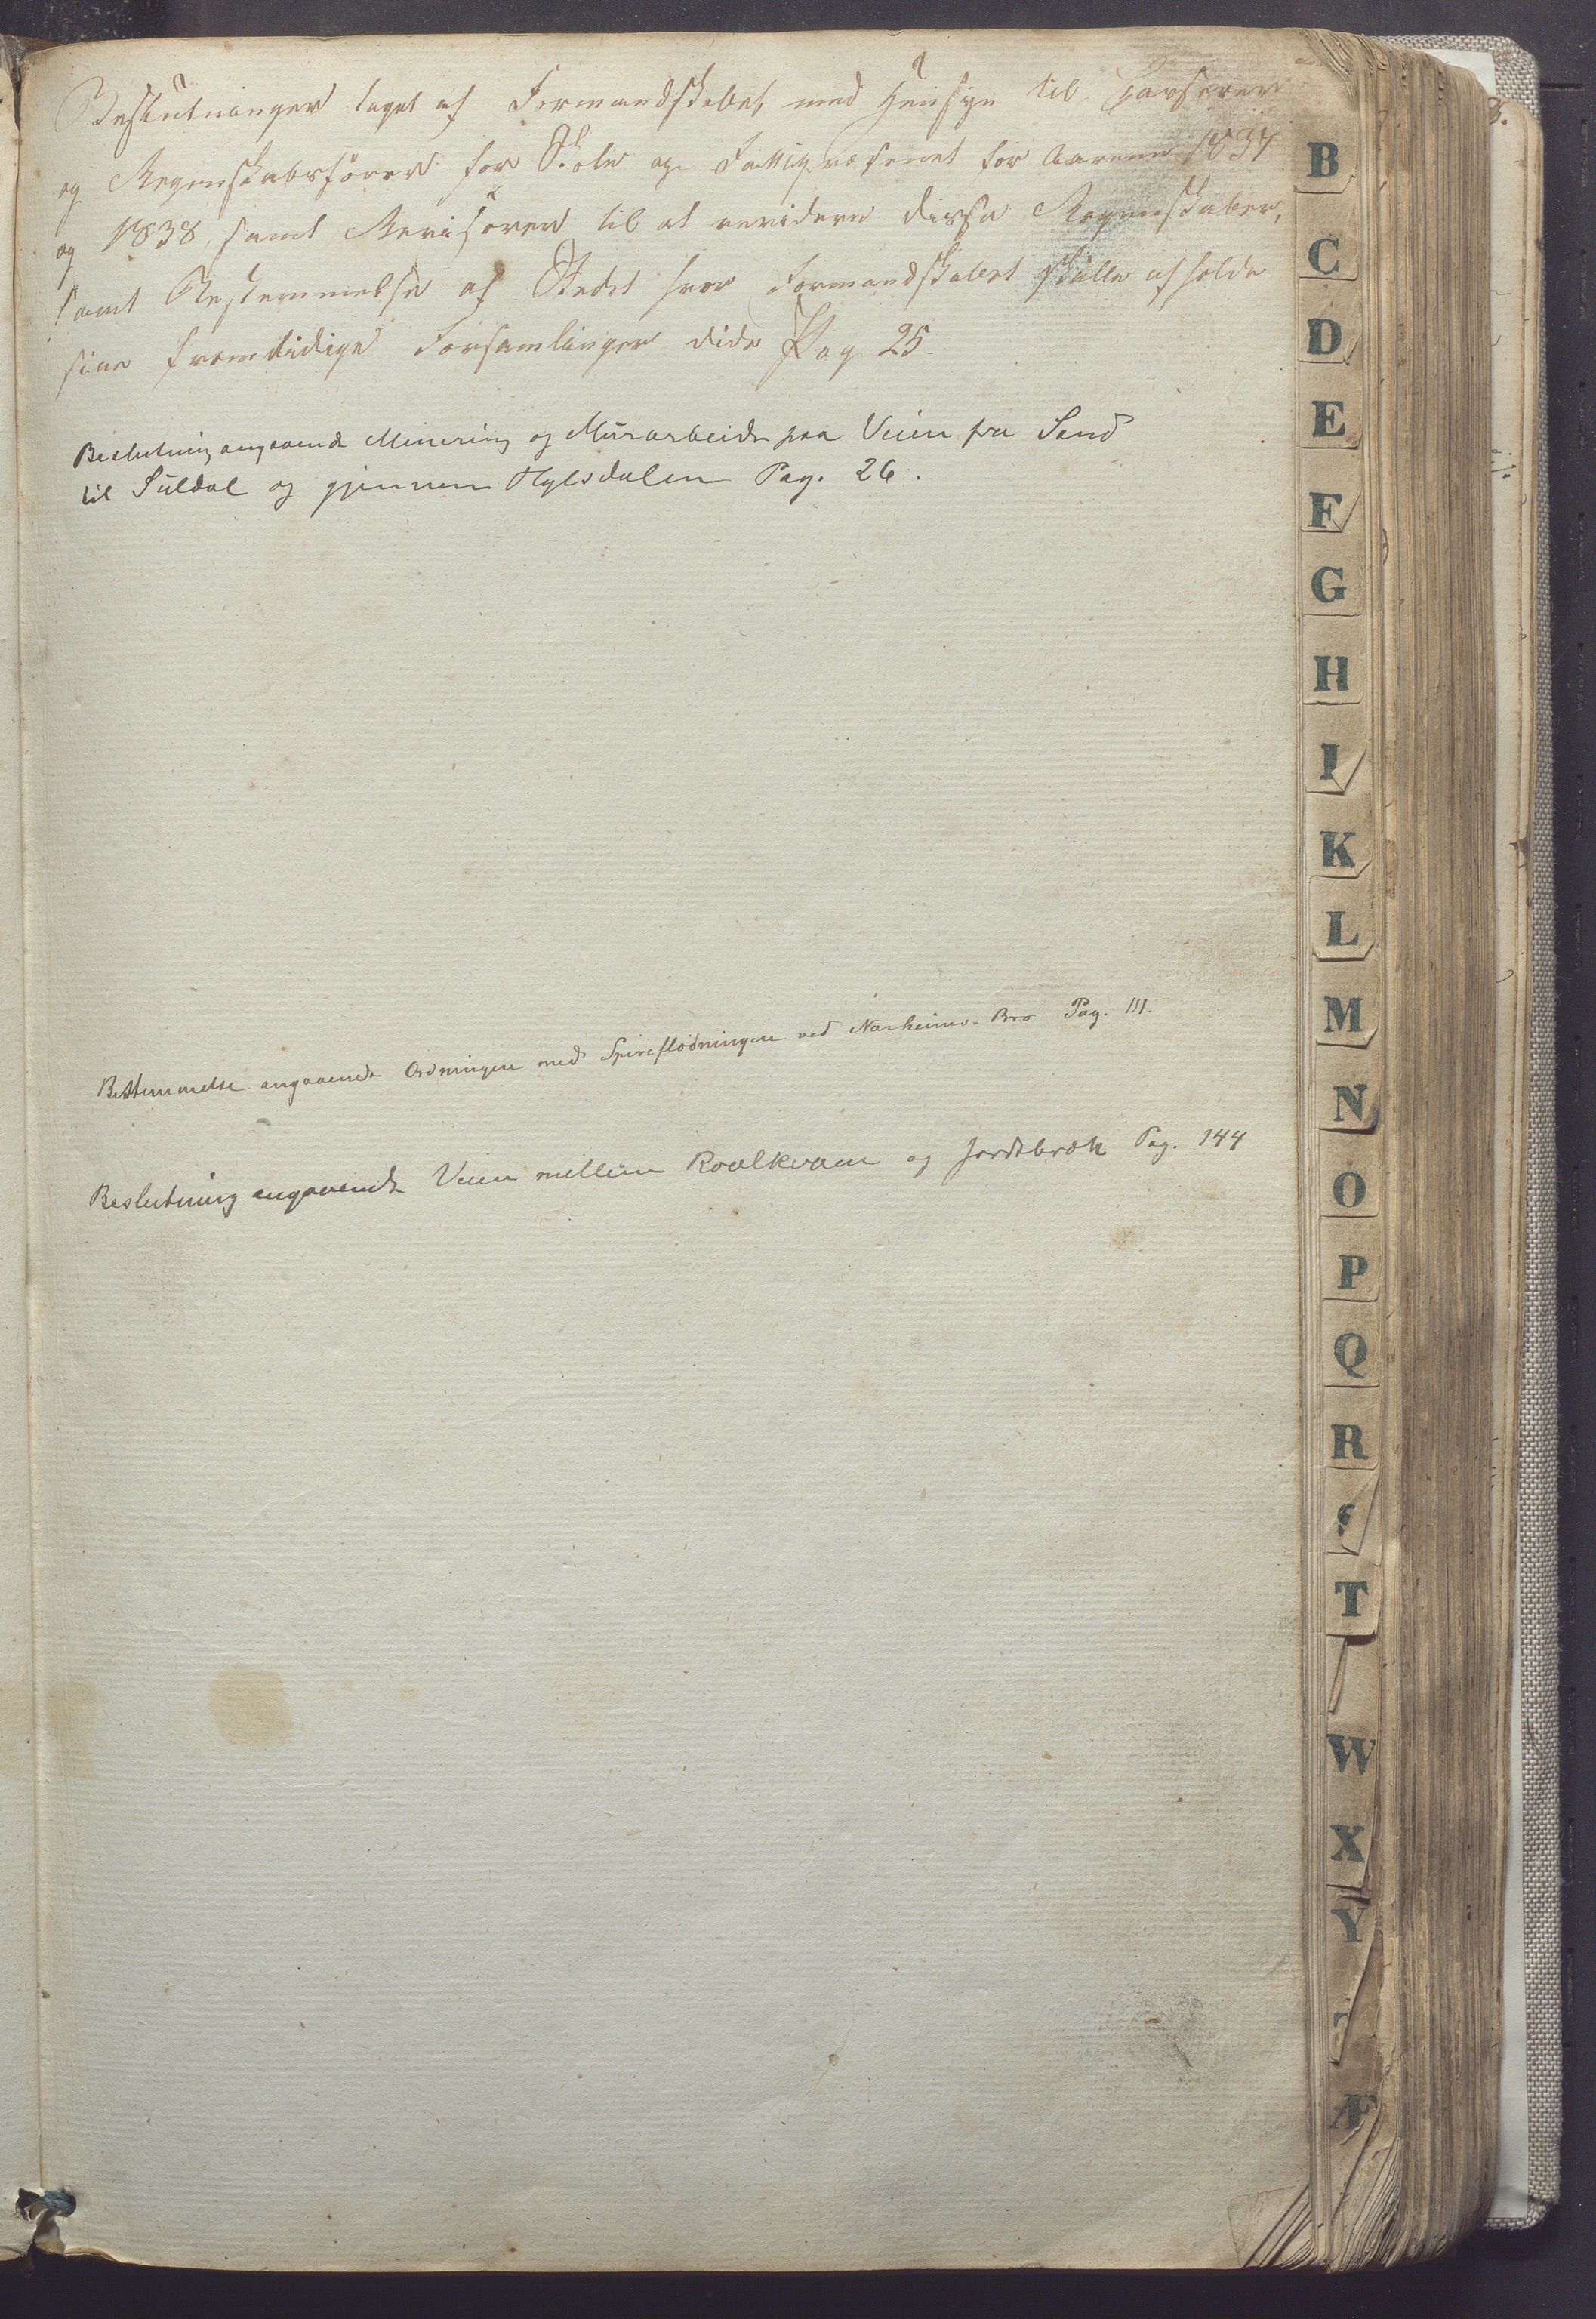 Beslutninger taget af Formandskabet, med Hensyn til Casserer
og Regenskabsförer for Skole og Fattigvæsenet for Aarene 1837
og 1838, samt Revisorer til at revidere disse Regenskaber,
samt Bestemmelse af Stedet hvor Formandskabet skulle afholde
sine fremtidige Forsamlinger vide Pag 25.
Beslutning angaaende Minering og Murarbeide paa Veien fra Sand
til Suldal og gjennem Hylsdalen Pag. 26.
Bestemmelse angaaende Ordningen med Spireflödningen ved Narheims-Bro Pag. 111.
Beslutning angaaende Veien mellem Roalkvam og Jordebræk Pag. 144
B
C
D
E
F
G
H
I
K
L
M
N
O
P
Q
R
S
T
W
X
Y
Æ